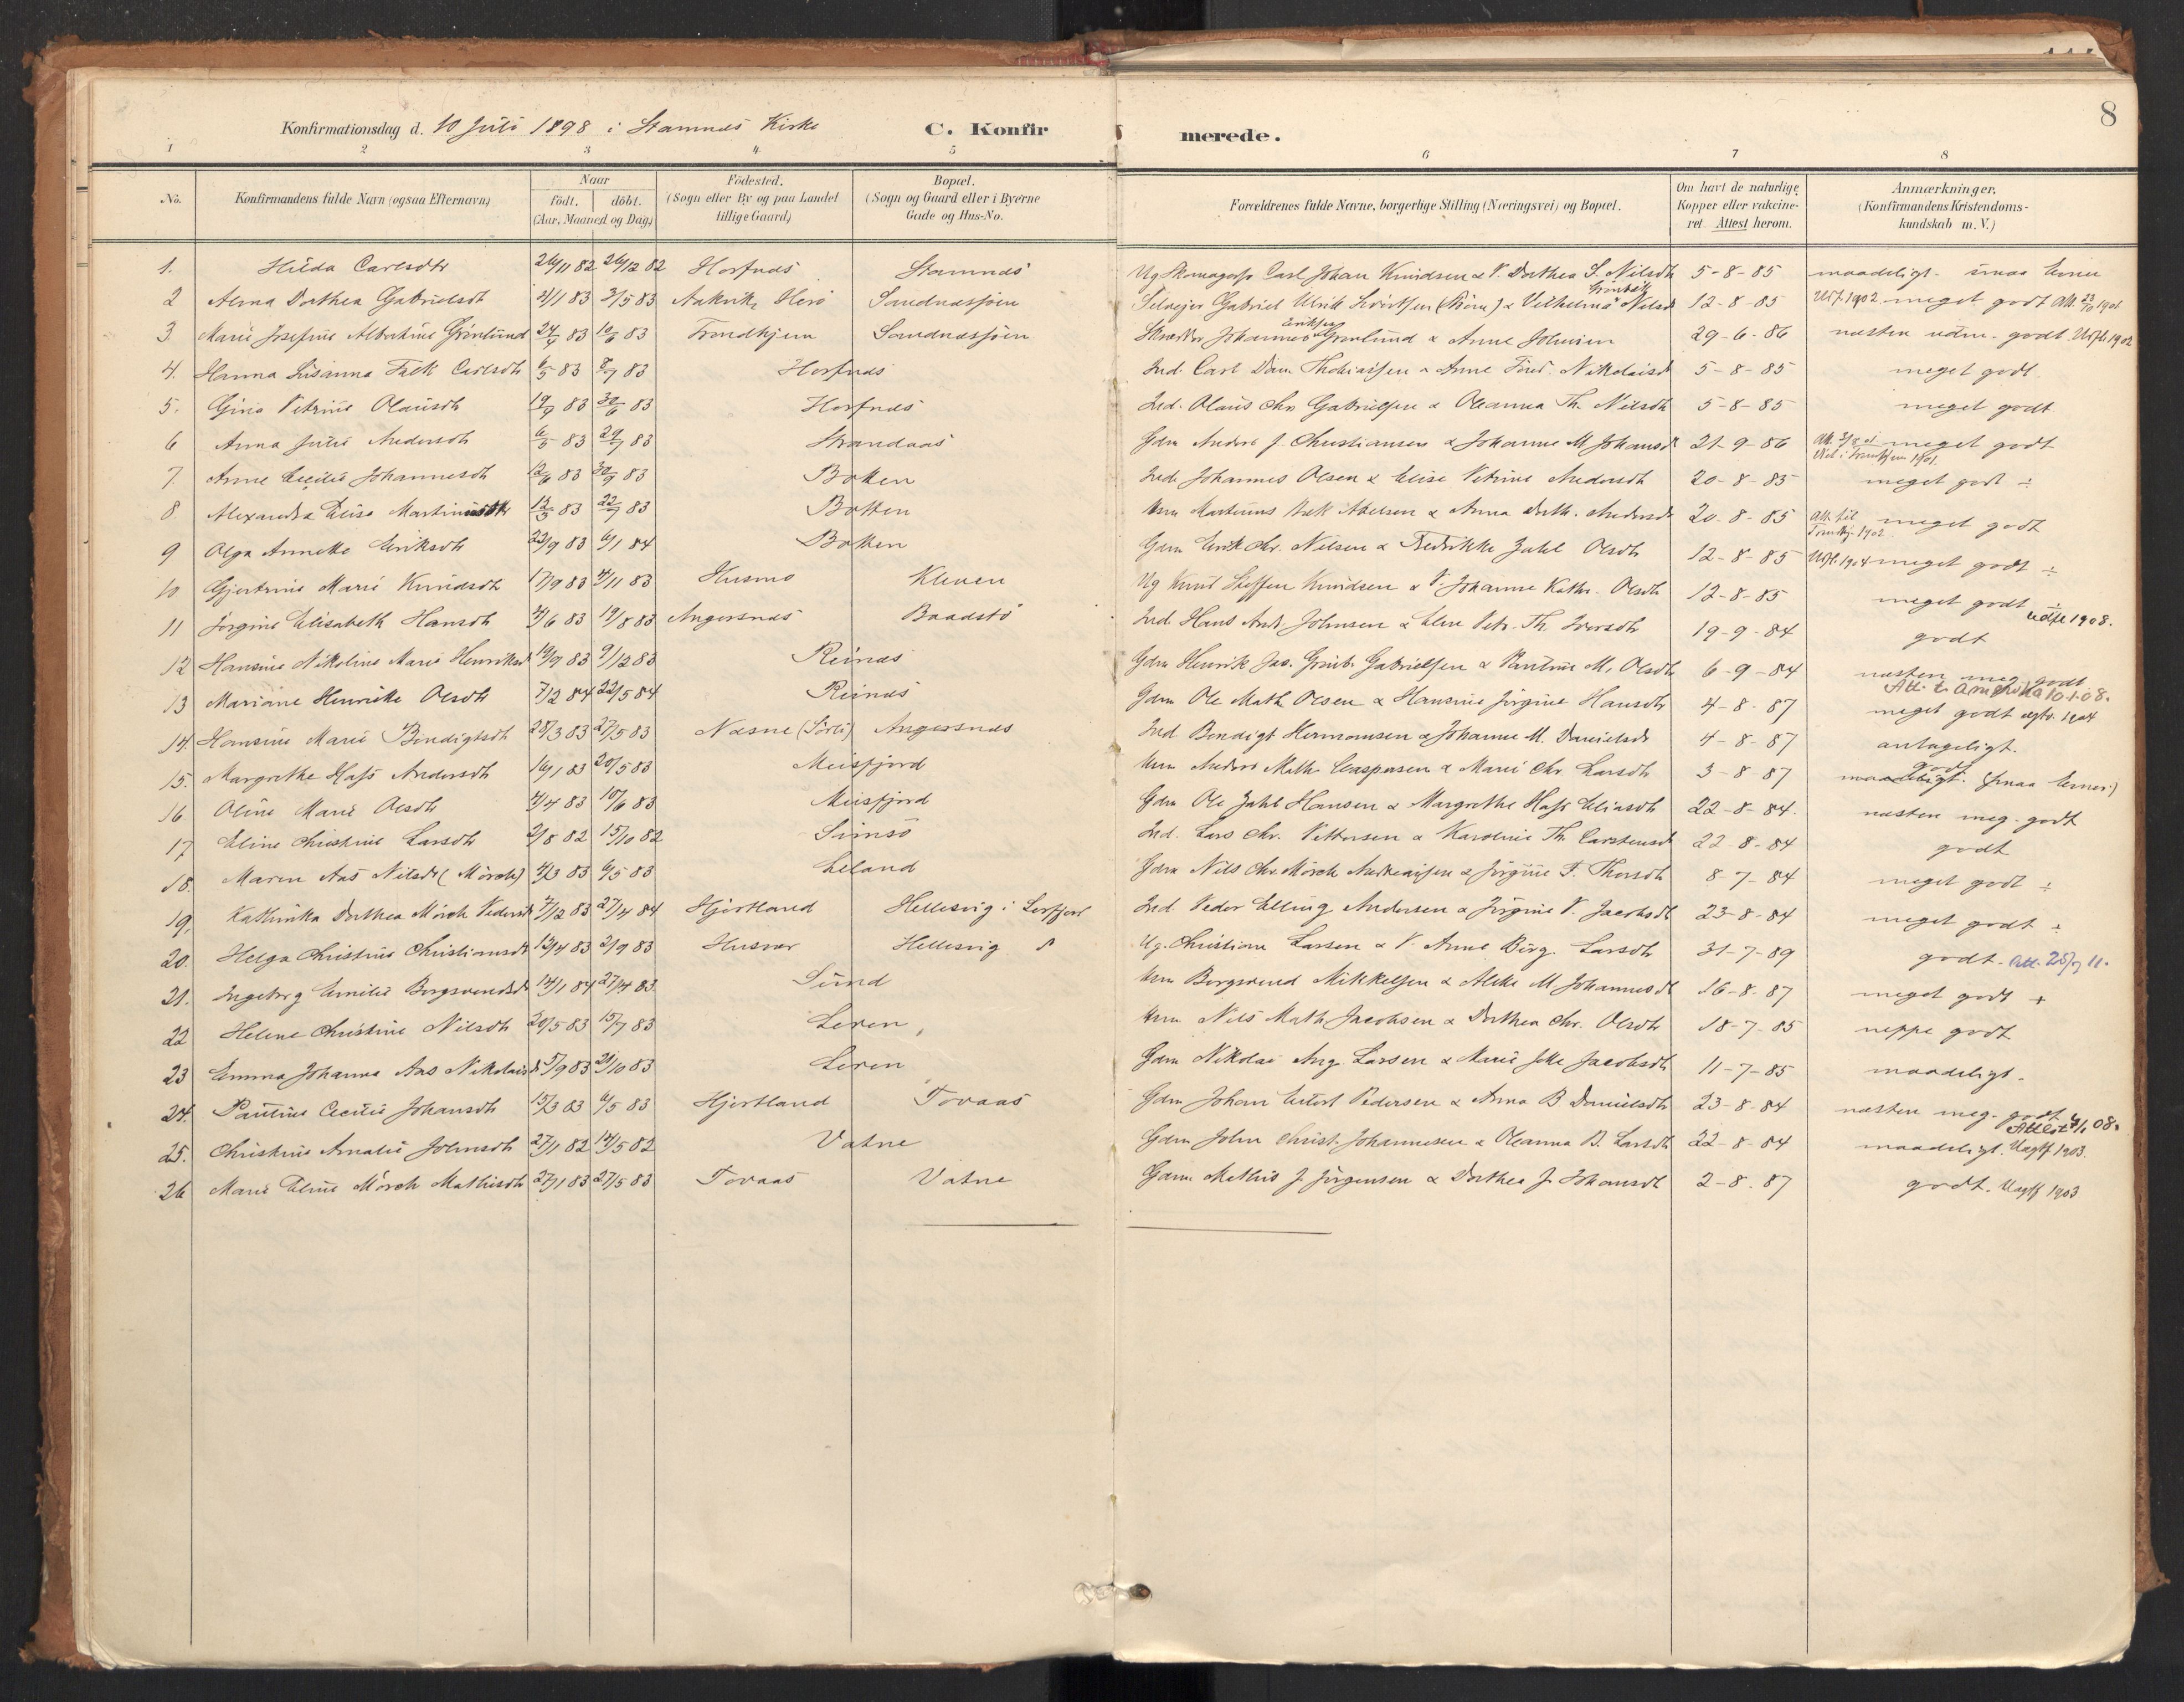 8
Konfirmationsdag d. 10 Juli 1898 i Stamnes Kirke C. Konfir merede.
1 2 3 4 5 6 7 8
No. Konfirmandens fulde Navn (ogsaa Efternavn) Naar født. døbt. (Aar, Maaned og Dag.) Födested. (Sogn eller By og paa Landet tillige Gaard) Bopæl. (Sogn og Gaard eller i Byerne Gade og Hus-No. Forældrenes fulde Navne, borgerlige Stilling (Næringsvei) og Bopæl. Om havt de naturlige Kopper eller vakcineret. Attest herom. Anmærkninger, (Konfirmandens Kristendomskundskab m. V.)
1. Hilda Carlsdtr 26/11 82 26/12 82 Horfnæs Stamnæs Ug Carl Johan Knudsen & P. Dorthea S. Nilsdtr 5-8-85 maadeligt - smaa Evner
2 Alma Dorthea Gabrielsdt 2/1 83 3/5 83 Aakvik, Herö Sandnæssjöen Gabriel Ulrik & Vilhelmine Nilsd Grönbek 12-8-85 Udf. 1902. meget godt Att. 1901
3. Marie Josefine Albertine Grönlund 24/4 83 10/6 83 Trondhjem Sandnæssjöen Skrædder Johannes Eriksen Grønlund & Anne Johnsen 29-6-86 næsten udm. godt. Udfl. 1902
4. Hanna Susanna Falk Carlsdtr 6/5 83 8/7 83 Horfnæs Ind. Carl Dan. Thobiassen & Anne Nikolaisd 5-8-85 meget godt.
5. Gina Petrine Olausdtr 19/7 83 30/6 83 Horfnæs Ind. Olaus Chr Gabrielsen & Oleanna Th. Nilsdtr 5-8-85 meget godt
6 Anna Julie Andersdtr 6/5 83 29/7 83 Strandaas Gdm Anders J. Christiansen & Johanne M Johansd 21-9-86 Att. meget godt
7. Anne Cecilie Johannesdtr 12/6 83 30/9 83 Botten Ind. Johannes Olsen & Elise Petrine Andersdtr 20-8-85 meget godt ÷
8 Alexandra Elisa Martinusdtr 12/3 83 22/7 83 Botten Hsm Martinus Abelsen & Anna Dorth. Andersd 20-8-85 Att. til Trondhj. 1902 meget godt
9 Olga Annette Eriksdtr 23/9 83 6/1 84 Botten Gdm Erik Chr. Nilsen & Fredrikke Zahl Olsdtr 12-8-85 Udfl. 1904 meget godt ÷
10 Gjertrine Marie Knudsdtr 17/9 83 4/11 83 Husmo Kleven Ug Knud Steffen Knudsen & P. Johanne Kathr. Olsdtr 12-8-85 meget godt ÷
11 Jörgine Elisabeth Hansdtr 4/6 83 19/8 83 Angersnæs Baadstö Ind Hans And. Johnsen & Elen Petr. Th. Iversdtr 19-9-84 godt udfl 1908.
12 Hansine Nikoline Marie Henriksd 19/9 83 9/12 83 Reinæs Gdm Henrik Jac. Gabrielsen & Pauline M. Olsdtr 6-9-84 næsten meg. godt
Att. t. Amerika 10.1.08.
13 Mariane Henrikke Olsdtr 7/2 84 22/5 84 Reinæs Gdm Ole Math Olsen & Hansine Jörgine Hansdtr 4-8-87 meget godt 1904
14. Hansine Marie Bendigtsdt 28/3 83 27/5 83 Næsne (Sörli) Angersnæs Ind. Bendigt Hermansen & Johanne M. Danielsdr 4-8-87 antageligt.
15. Margrethe Hass Andersdtr 16/1 83 20/5 83 Meisfjord Hsm Anders Math. Caspersen & Marie Chr. Larsdtr 3-8-87 maadeligt. godt (smaa Evner)
16 Oline Marie Olsdtr 4/4 83 10/6 83 Meisfjord Gdm Ole Zahl Hansen & Margrethe Hass Eliasdtr 22-8-84. næsten meg. godt
17 Eline Christine Larsdtr 2/8 82 15/10 82 Simsö Ind. Lars Chr. Pettersen & Karoline Th. Carstensd 22-8-84 godt
18. Maren Aas Nilsdtr (Mörch) 4/3 83 6/5 83 Leland Gdm Nils Chr. Mörch Andreassen & Jörgine F. Thorsdtr 8-7-84 meget godt ÷
19. Kathinka Dorthea Mörch Pedersd 7/12 83 27/4 84 Hjortland Hellesvig i Leirfjord Ind Peder Elling Andersen & Jörgine P. Jacobsdt 23-8-84 meget godt ÷
20. Helga Christine Christiansdt 12/4 83 2/9 83 Husvær Hellesvig Ug. Christian Larsen & P. Anne Birg. Larsdtr 31-7-89 godt. Att. 25/7 11.
21. Ingeborg Emilie Borgsvendsd 14/1 84 27/4 83 Sund Hsm Borgsvend Mikkelsen & Alike M Johannesdt 16-8-87 meget godt +
22 Helene Christine Nilsdtr 20/5 83 15/7 83 Leren Hsm Nils Math Jacobsen & Dorthea Chr. Olsdtr 18-7-85 neppe godt
23 Emma Johanna Aas Nikolaisd 5/9 83 21/10 83 Leren Gdm Nikolai Aug Larsen & Marie Jacobsdtr 11-7-85 maadeligt.
24. Pauline Cecilie Johansdtr 15/3 83 6/5 83 Hjortland Tovaas Gdm Johan Pedersen & Anna B Danielsdtr 23-8-84 næsten meg. godt
25. Christine Amalie Johnsdtr 27/1 82 14/5 82 Vatne Gdm John Christ. Johannesen & Oleanna B. Larsdtr 22-8-84 maadeligt. 1903.
26 Marie Eline Mörch Mathisdtr 27/1 83 27/5 83 Tovaas Vatne Gdm Mathis J. Jörgensen & Dorthea J. Johansdt 2-8-87 godt. 1903